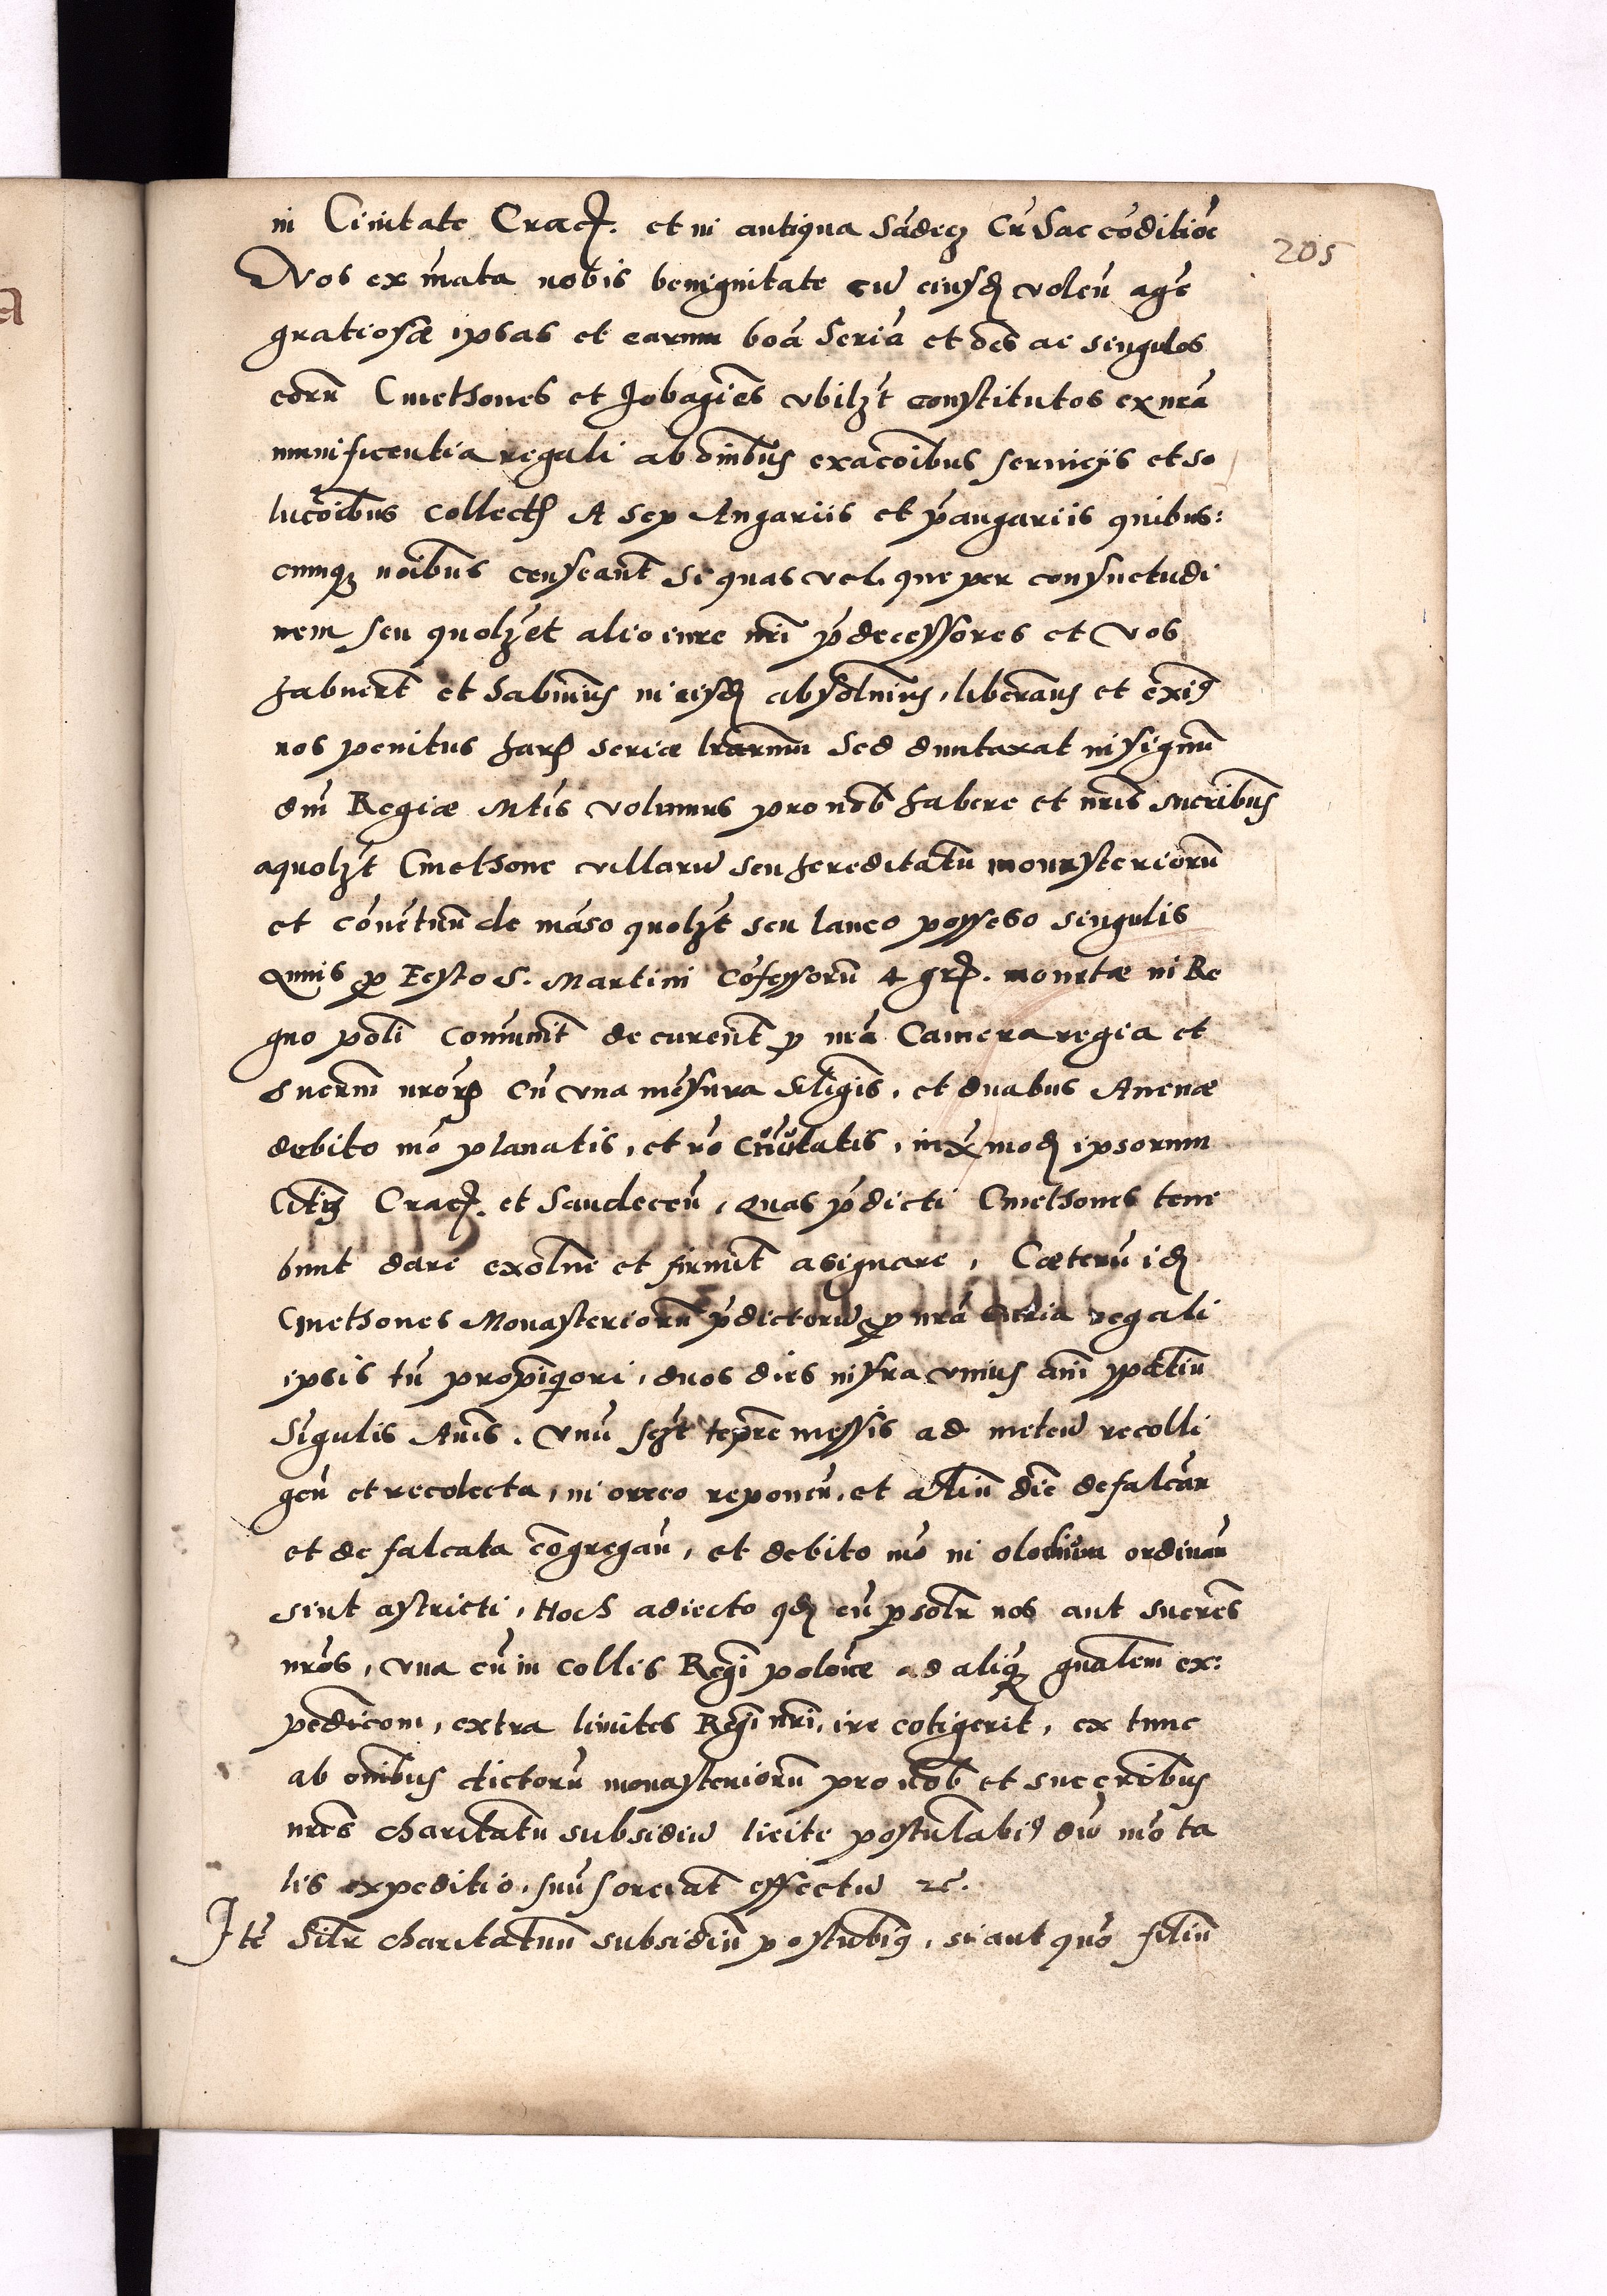 in Ciuitate Crac. et in antiqua Sãdecz Cũ hac cõditiõe
205
Nos ex ĩnata nobis benignitate cũ eiusdẽ voleñ agẽ
gratiosæ ipsas et earum boã seriã et oẽs ac singulos
eorũ Cmethones et Jobagiẽs vbilzt constitutos ex nrã
munificentia regali ab oĩnibus exacõibus seruicijs et so
lucõibus collectꝝ A Sep Angariis et p̃angariis quibus:
cumqz noĩbus censeant Si quas vel que per consuetudi
nem seu quolzet alio iure nrĩ p̃decessores et Nos
habuert et habuim9 in eisdẽ absoluim9, liberam9 et exim9
nos penitus harꝝ serie lrarum Sed duntaxat in signũ
dnĩ Regiæ Mtis volumus pro nob habere et nrĩs sucribus
a quolzt Cmethone villarũ seu hereditatũ monasteriorũ
et cõuẽtuũ de mãso quolzt seu laneo possesso singulis
Annis p̃ Festo S. Martini Cõfessorũ 4 gr. monetæ in Re
gno poli comunit decureñt p nrã Camera regia et
sucrum nrorꝝ Cũ vna mẽsura siliginis, et duabus Auenæ
debito mõ planatis, et nõ cumulatis, iuxᷓ modũ ipsorum
Citᷓz Crac. et Sandeceñ, Quas p̃dicti Cmethones tene
bunt dare exoluẽ et firmit asignare, Cæterũ idẽ
Cmethones Monasteriorũ p̃dictorũ p̃ nrã Curia regali
ipsis tũ propĩqiori, duos dies infra vnius anĩ spatiũ
Sĩgulis Anĩs, vnũ sczt tẽpre messis ad metẽũ recolli
geñ et recolecta, in orreo reponeñ, et aliũ diẽ defalcañ
et defalcata cõgregañ, et debito mõ in ordinañ
sint astricti, Hoch adiecto qdẽ cũ p̃solr nos aut sucrẽs
nrõs, vna cũ in collis Regĩ poloniæ ad aliqᷓ gnalem ex:
pedicom, extra limites Regĩ nrĩ, ire cõtigerit, ex tunc
ab oĩnibus dictorũ monasteriorũ pro nob et succeribus
nrĩs charitatiũ subsidiũ licite postulabĩ9 dũmõ ta
lis expeditio, suũ sorciat effectũ ꝛc.
Jtẽ Silr charitatiuũ subsidiũ postulabĩ9, si aut quõ filiũ